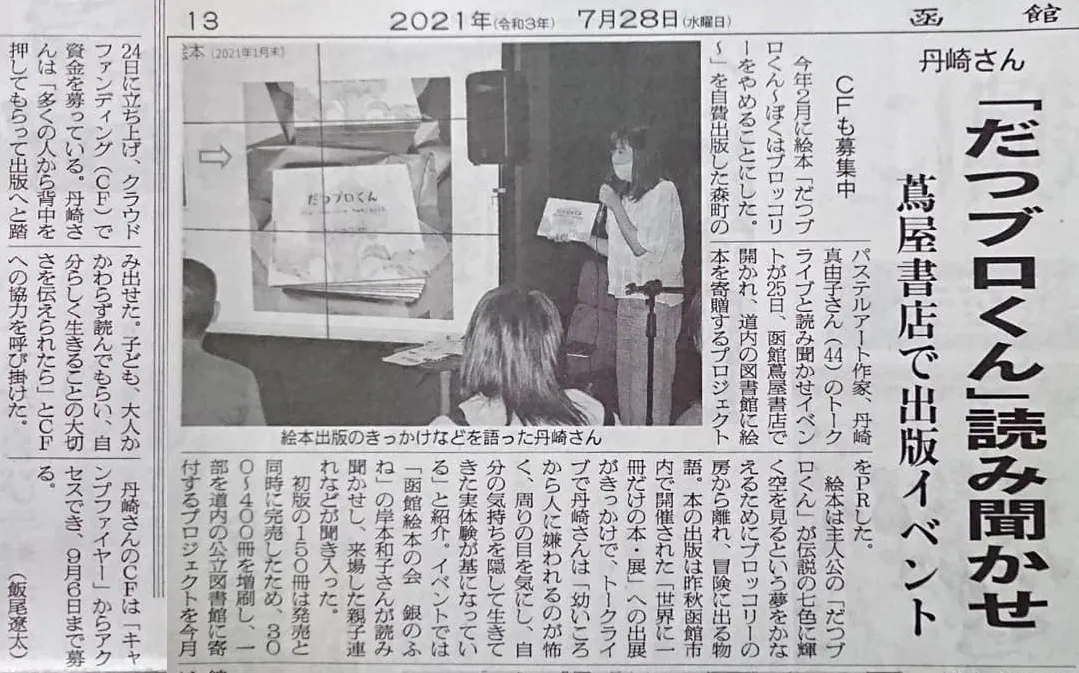 13
2021年(令和3年) 7月28日(水曜日)
函 館
丹崎さん
「だつブロくん」読み聞かせ
蔦屋書店で出版イベント
CFも募集中
今年2月に絵本「だつブ
ロくん〜ぼくはブロッコリ
ーをやめることにした。
〜」を自費出版した森町の
パステルアート作家、丹崎
真由子さん(44)のトーク
ライブと読み聞かせイベン
トが25日、函館蔦屋書店で
開かれ、道内の図書館に絵
本を寄贈するプロジェクト
をPRした。
絵本は主人公の「だつブ
ロくん」が伝説の七色に輝
く空を見るという夢をかな
えるためにブロッコリーの
房から離れ、冒険に出る物
語。本の出版は昨秋函館市
内で開催された「世界に一
冊だけの本・展」への出展
がきっかけで、トークライ
ブで丹崎さんは「幼いころ
から人に嫌われるのが怖
く、周りの目を気にし、自
分の気持ちを隠して生きて
きた実体験が基になってい
る」と紹介。イベントでは
「函館絵本の会 銀のふ
ね」の岸本和子さんが読み
聞かせし、来場した親子連
れなどが聞き入った。
初版の150冊は発売と
同時に完売したため、30
0〜400冊を増刷し、一
部を道内の公立図書館に寄
付するプロジェクトを今月
24日に立ち上げ、クラウド
ファンディング(CF)で
資金を募っている。丹崎さ
んは「多くの人から背中を
押してもらって出版へと踏
み出せた。子ども、大人か
かわらず読んでもらい、自
分らしく生きることの大切
さを伝えられたら」とCF
への協力を呼び掛けた。
丹崎さんのCFは「キャ
ンプファイヤー」からアク
セスでき、9月6日まで募
る。
(飯尾遼太)
絵本 (2021年1月末)
だつブロくん
絵本出版のきっかけなどを語った丹崎さん